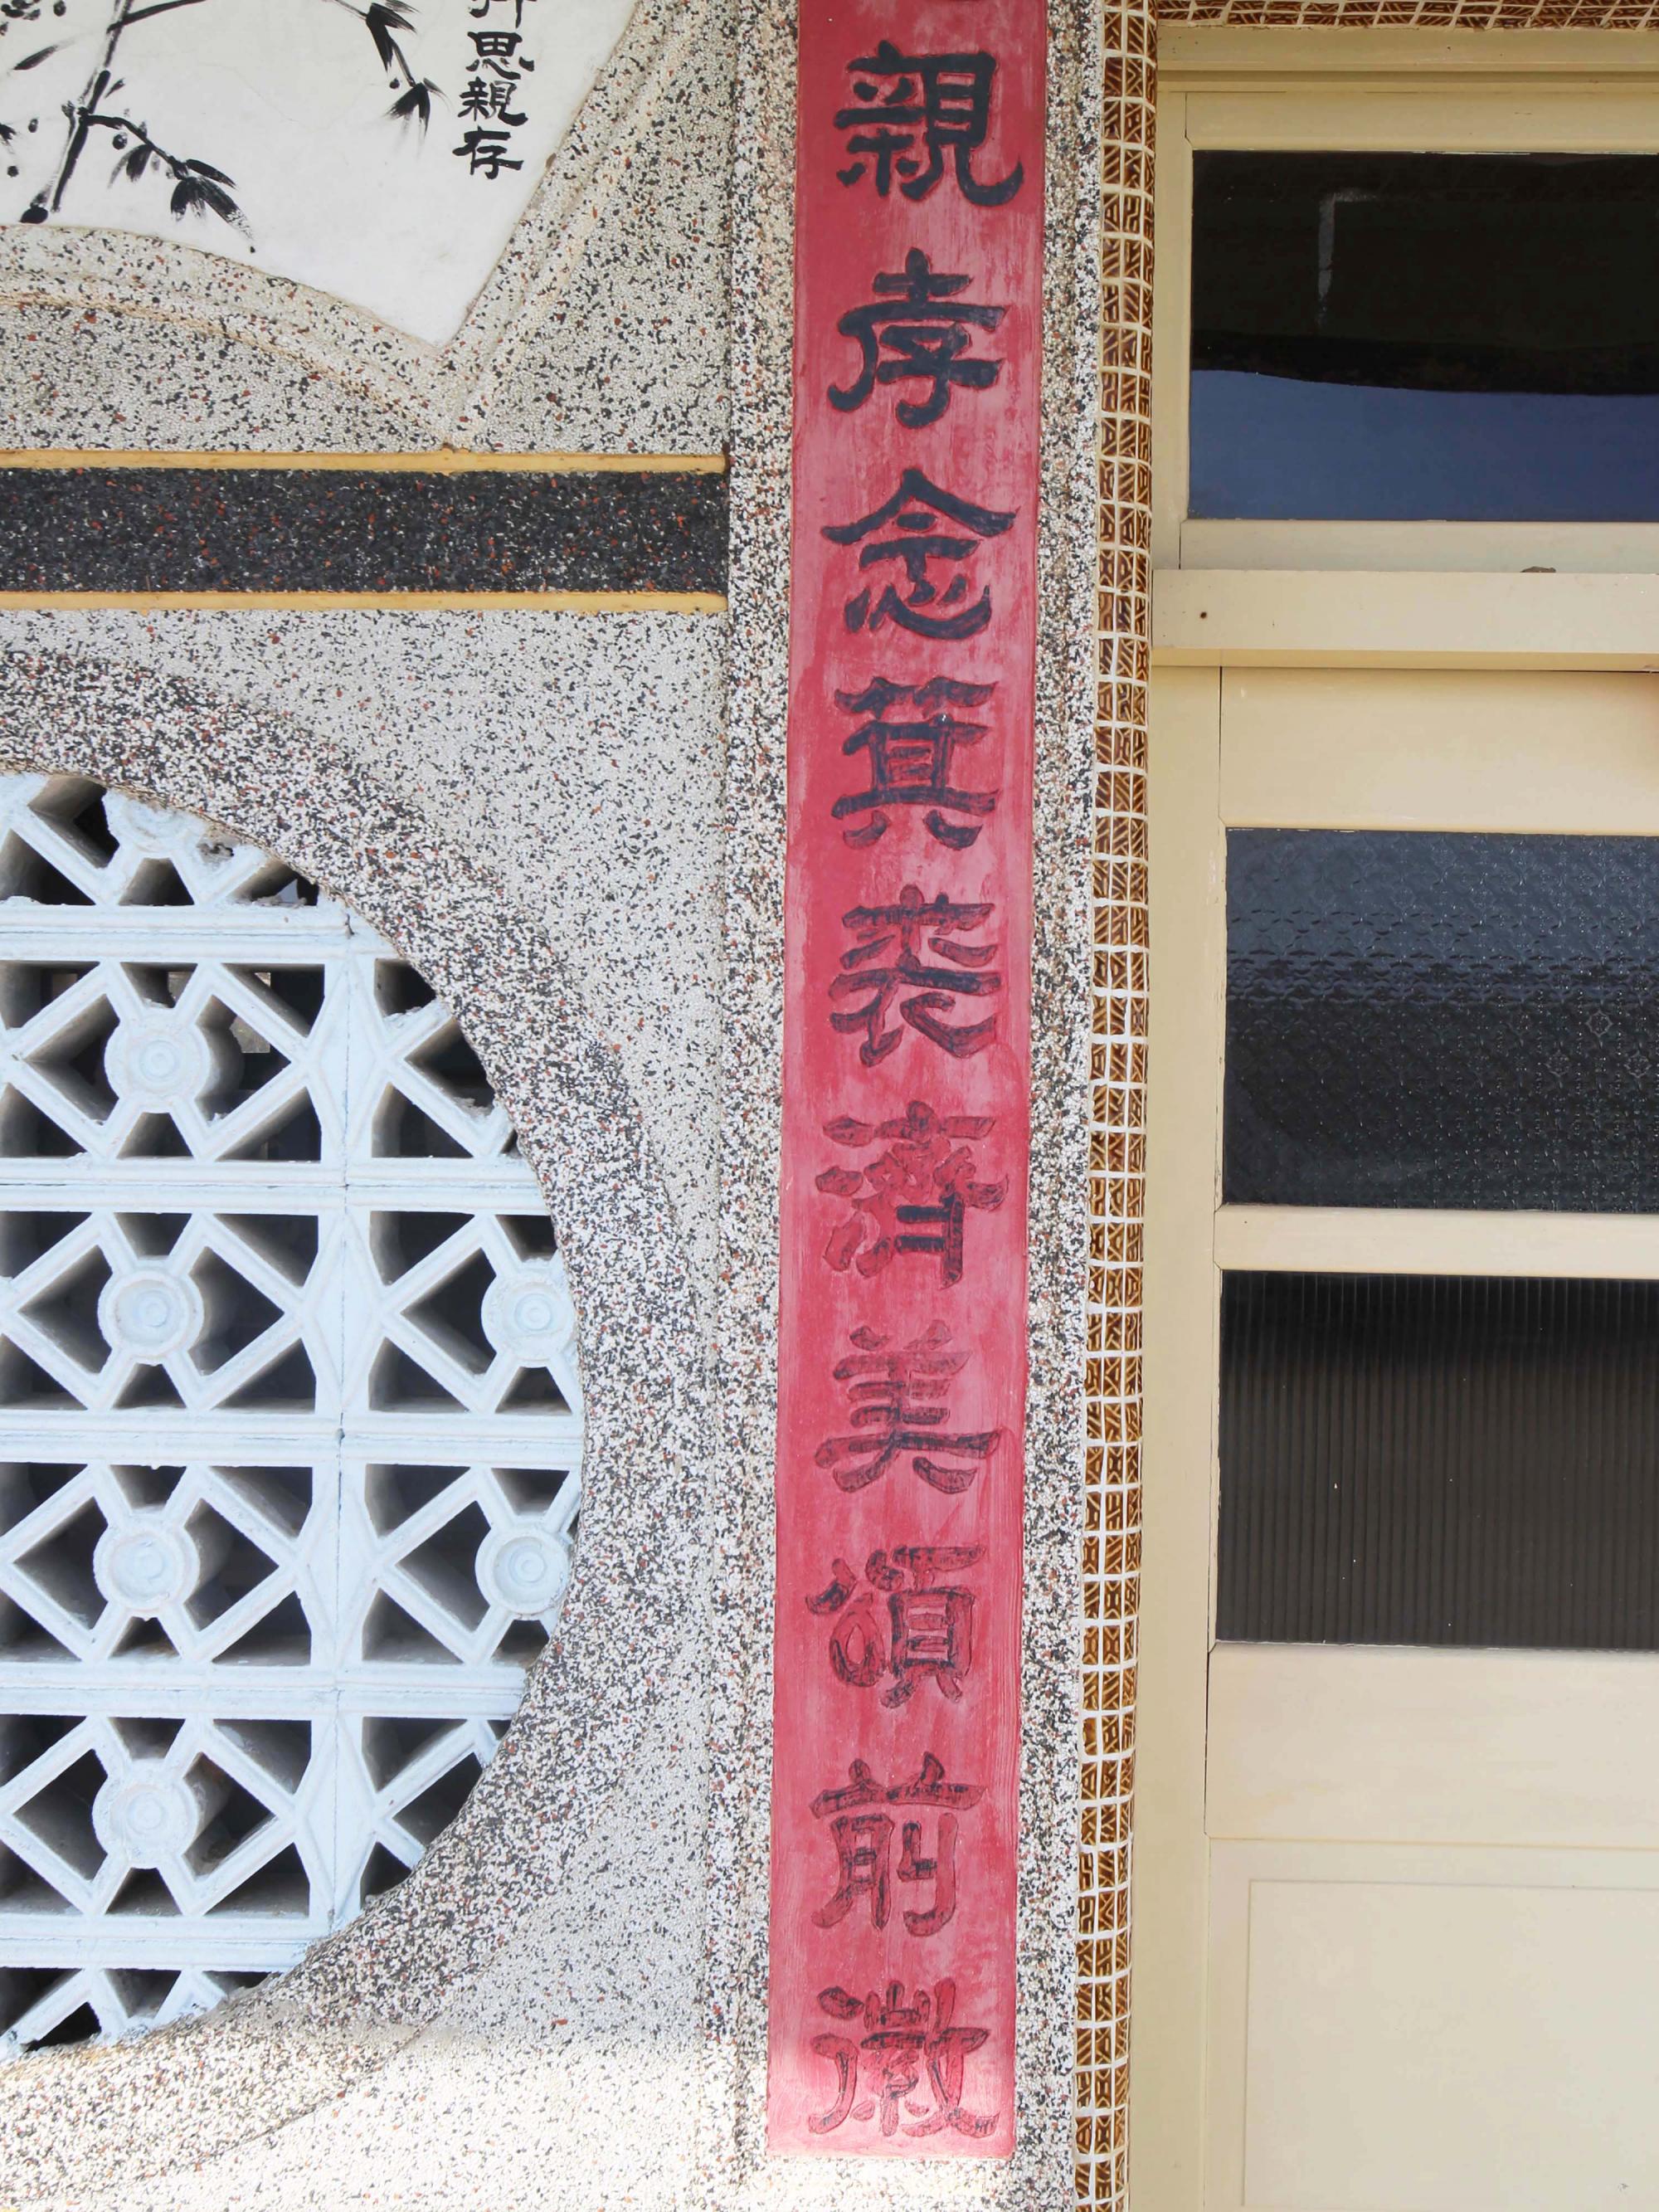 思親存
親孝念箕裘濟美頌前徽